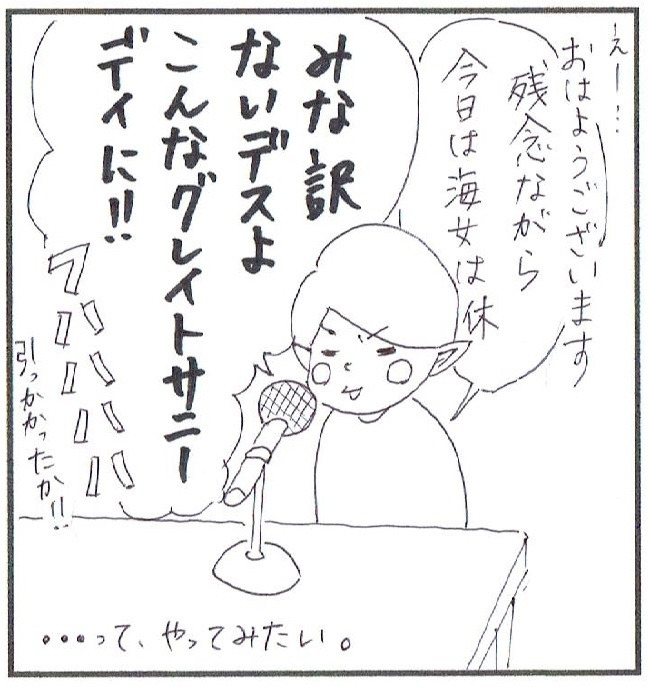 えー…
おはようございます
残念ながら
今日は海女は休
みな訳
ないデスよ
こんなグレイトサニー
デイに!!
フハハハハ
引っかかったか!!
・・・って、やってみたい。